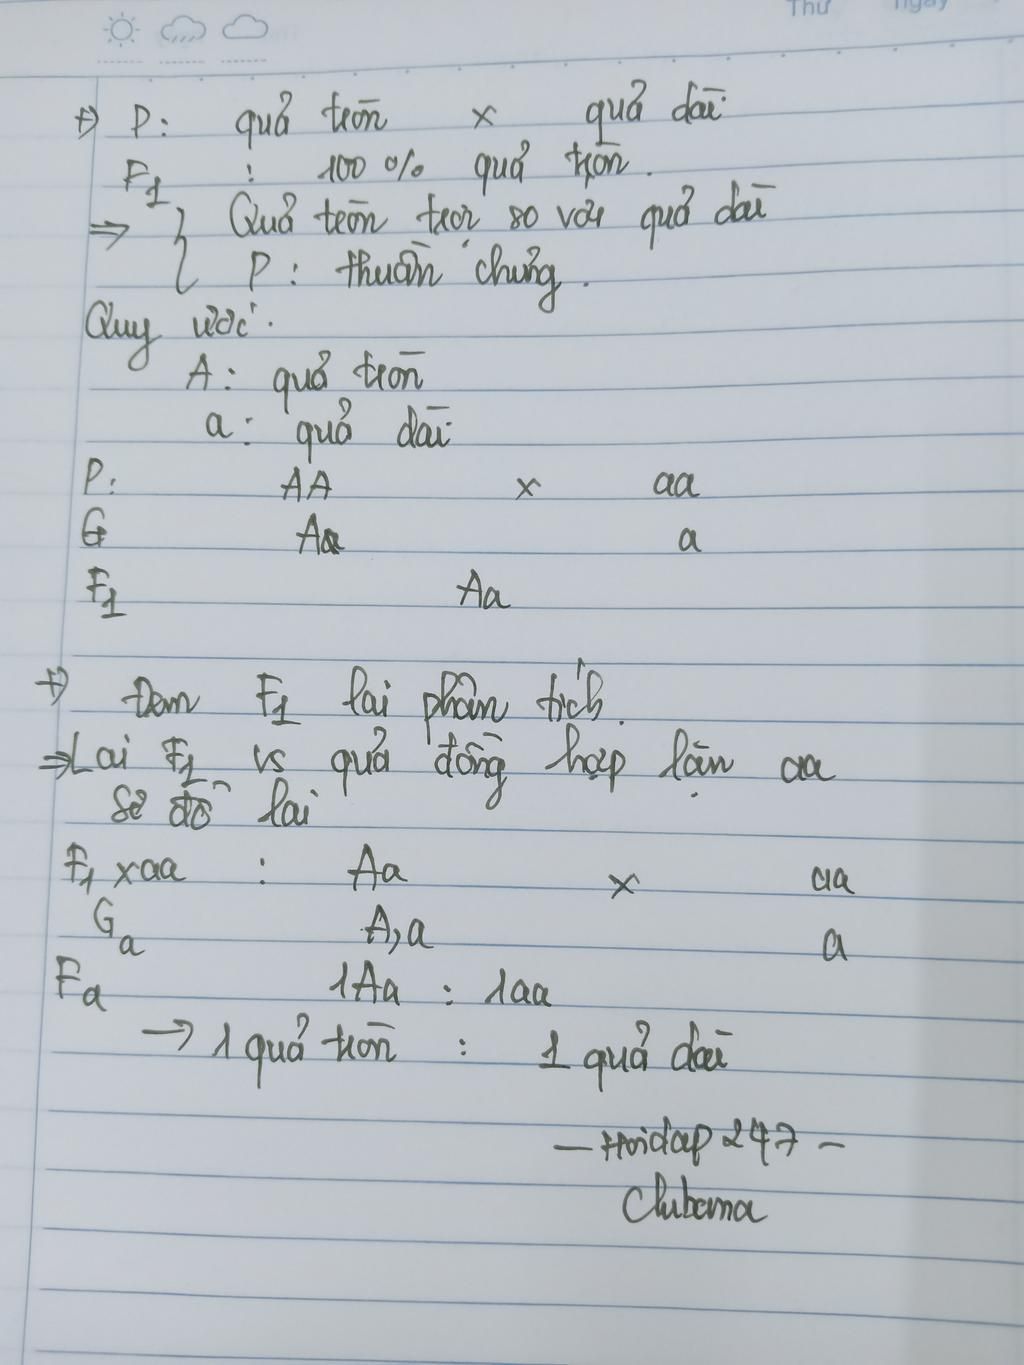 Thứ Ngày
+) P: quả tròn x quả dài
F1 : 100% quả tròn.
=> { Quả tròn trội so với quả dài
P: thuần chủng.
Quy ước:
A: quả tròn
a: quả dài
P: AA x aa
G Aa a
F1 Aa
+) Đem F1 lai phân tích.
=> Lai F1 vs quả đồng hợp lặn aa
Sơ đồ lai
F1 x aa : Aa x aa
Ga A, a a
Fa 1Aa : 1aa
-> 1 quả tròn : 1 quả dài
— Hoidap 247 —